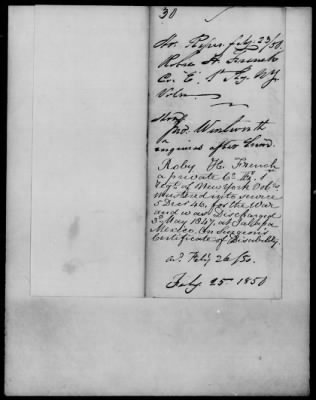 30
Ho. Reps. feby. 23/50.
Robie H. French
Co. E. 1st Ny
Volrs.
Hon
Jno. Wentworth
inquires after
Roby H. French
a private Co. E, 1st
regt. of New York Vols.
mustered into service
5 Decr 46, for the War
and was Discharged
3 May 1847, at Jalapa
Mexico. On Surgeon's
Certificate of Disability.
ansd Feby 26/50.
Feby 25. 1850